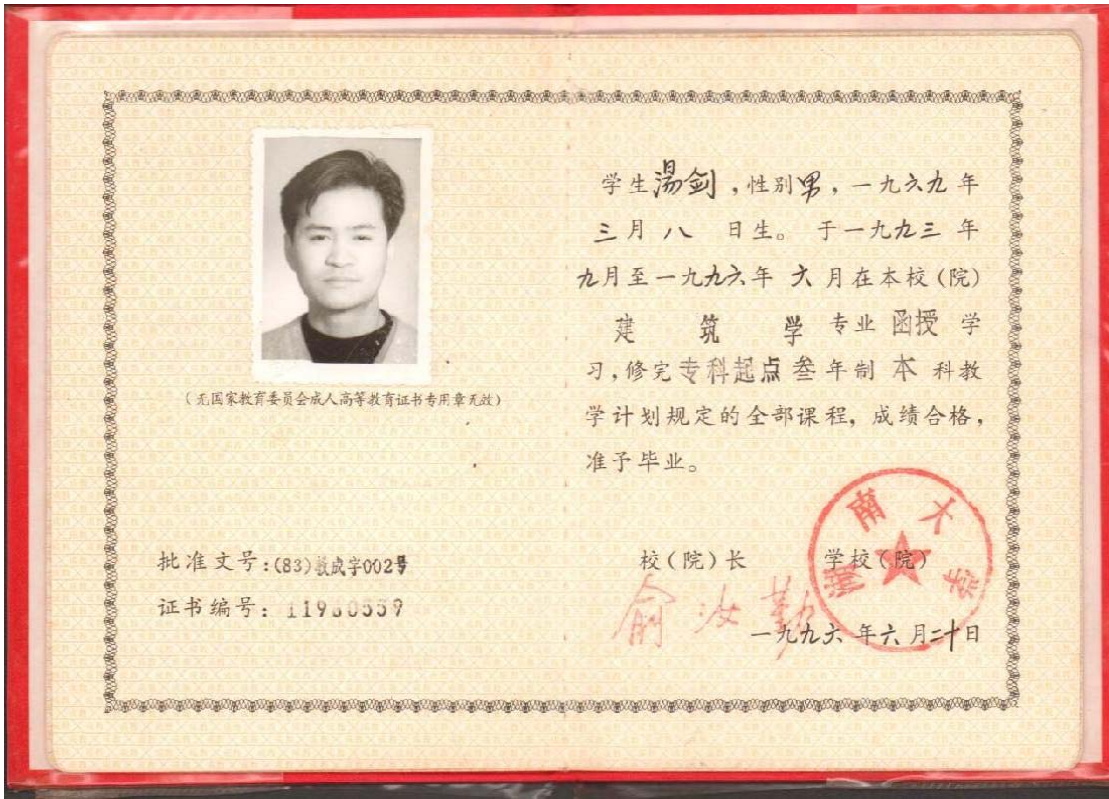 (无国家教育委员会成人高等教育证书专用章无效)
批准文号:(83)教成字002号
证书编号:11960559
学生湯剑,性别男,一九六九年
三月八 日生。于一九九三 年
九月至一九九六年 六 月在本校(院)
建 筑 学 专业 函授 学
习,修完专科起点叁年制 本 科教
学计划规定的全部课程,成绩合格,
准予毕业。
湖南大学
校(院)长 学校(院)
俞汝勤
一九九六 年六月二十日